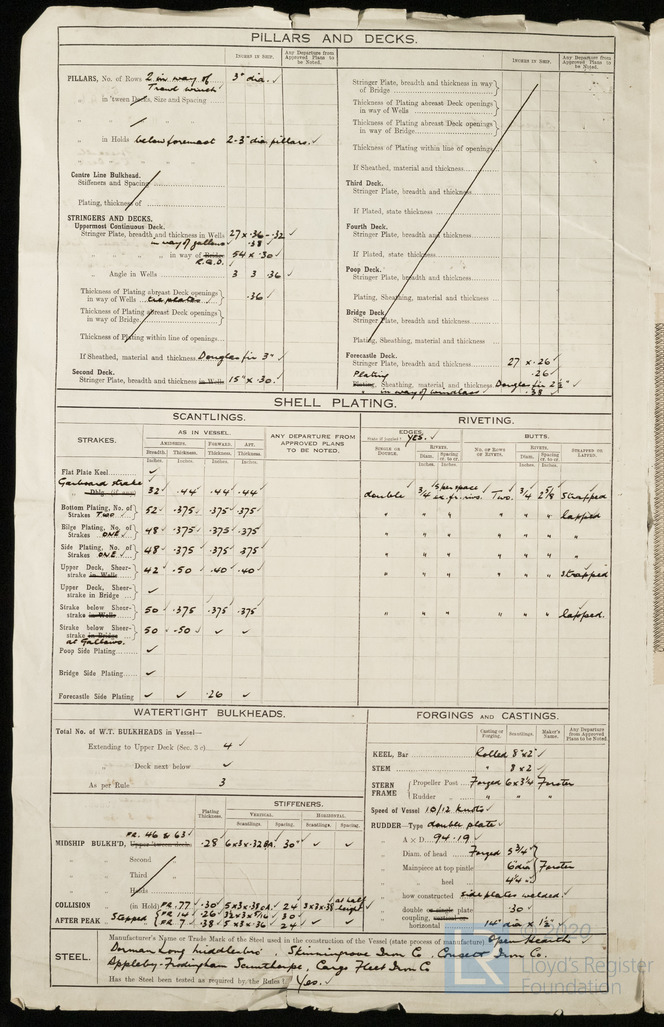 PILLARS AND DECKS.
INCHES IN SHIP.
Any Departure from Approved Plans to be Noted.
PILLARS, No. of Rows 2 in way of Trawl winch 3" dia. ✓
„ in 'tween Decks, Size and Spacing
„ in Holds below foremast 2-3" dia pillars. ✓
Centre Line Bulkhead.
Stiffeners and Spacing
Plating, thickness of
STRINGERS AND DECKS.
Uppermost Continuous Deck.
Stringer Plate, breadth and thickness in Wells 27 x .36 - .32 ✓
in way of gallows ✓ .38 ✓
„ „ in way of Bridge R.Q.D. 54 x .30 ✓
„ Angle in Wells 3 3 .36 ✓
Thickness of Plating abreast Deck openings in way of Wells tie plates ✓ .36 ✓
Thickness of Plating abreast Deck openings in way of Bridge
Thickness of Plating within line of openings
If Sheathed, material and thickness Douglas fir 3" ✓
Second Deck.
Stringer Plate, breadth and thickness in Wells 15" x .30 ✓
INCHES IN SHIP.
Any Departure from Approved Plans to be Noted.
Stringer Plate, breadth and thickness in way of Bridge
Thickness of Plating abreast Deck openings in way of Wells
Thickness of Plating abreast Deck openings in way of Bridge
Thickness of Plating within line of openings
If Sheathed, material and thickness
Third Deck.
Stringer Plate, breadth and thickness
If Plated, state thickness
Fourth Deck.
Stringer Plate, breadth and thickness
If Plated, state thickness
Poop Deck.
Stringer Plate, breadth and thickness
Plating, Sheathing, material and thickness
Bridge Deck.
Stringer Plate, breadth and thickness
Plating, Sheathing, material and thickness
Forecastle Deck.
Stringer Plate, breadth and thickness 27 x .26 ✓
Plating .26 ✓
Plating, Sheathing, material and thickness Douglas fir 2½" ✓
„ in way of windlass .38 ✓
SHELL PLATING.
SCANTLINGS.
RIVETING.
STRAKES.
AS IN VESSEL.
AMIDSHIPS. FORWARD. AFT.
Breadth. Thickness. Thickness. Thickness.
Inches. Inches. Inches. Inches.
ANY DEPARTURE FROM APPROVED PLANS TO BE NOTED.
EDGES. State if joggled? YES. ✓
SINGLE OR DOUBLE.
RIVETS. Diam. Spacing cr. to cr.
Inches. Inches.
BUTTS.
NO. OF ROWS OF RIVETS.
RIVETS. Diam. Spacing cr. to cr.
Inches. Inches.
STRAPPED OR LAPPED.
Flat Plate Keel ✓
Garboard strake
„ Dblg. (if any) 32 .44 ✓ .44 ✓ .44 double ¾ Two. ¾ 2⅝ Strapped
Bottom Plating, No. of Strakes TWO ✓ 52 .375 .375 .375 „ „ „ „ „ „ lapped
Bilge Plating, No. of Strakes ONE ✓ 48 .375 .375 .375 „ „ „ „ „ „ „
Side Plating, No. of Strakes ONE ✓ 48 .375 .375 .375 „ „ „ „ „ „ „
Upper Deck, Sheer-strake in Wells 42 .50 .40 .40 „ „ „ „ „ „ strapped
Upper Deck, Sheer-strake in Bridge ✓
Strake below Sheer-strake in Wells 50 .375 .375 .375 „ „ „ „ „ „ lapped.
Strake below Sheer-strake in Bridge at Gallows. 50 .50 ✓ ✓ ✓
Poop Side Plating ✓
Bridge Side Plating ✓
Forecastle Side Plating ✓ ✓ .26 ✓
WATERTIGHT BULKHEADS.
Total No. of W.T. BULKHEADS in Vessel—
Extending to Upper Deck (Sec. 3 c) 4 ✓
„ Deck next below ✓
As per Rule 3
Plating Thickness.
STIFFENERS.
VERTICAL. HORIZONTAL.
Scantlings. Spacing. Scantlings. Spacing.
FR. 46 & 63
MIDSHIP BULKH'D, Upper 'tween deck .28 6x3x.32BA 30" ✓ ✓
„ Second
„ Third
„ Holds
COLLISION „ (in Hold) FR. 77 .30 5x3x.38 24 3x3x.38 at half height
AFTER PEAK „ Stepped FR 14 .26 30 ✓
FR 7 .38 5x3x.36 24 ✓ ✓
FORGINGS AND CASTINGS.
Casting or Forging. Scantlings. Maker's Name. Any Departure from Approved Plans to be Noted.
KEEL, Bar Rolled 8"x2" ✓
STEM „ 8 x 2 ✓
STERN FRAME Propeller Post Forged 6x3¼ Forster
Rudder „ „ „ „
Speed of Vessel 10/12 knots ✓
RUDDER—Type double plate ✓
„ A x D 94.19 ✓
„ Diam. of head Forged 5¾"
„ Mainpiece at top pintle 6"dia Forster
„ „ heel 4¼"
„ how constructed side plates welded.
„ double or single plate .30 ✓
„ coupling, vertical or horizontal 14" dia x 1½" ✓
STEEL.
Manufacturer's Name or Trade Mark of the Steel used in the construction of the Vessel (state process of manufacture) Open Hearth
Dorman Long Middlesbro', Skinningrove Iron Co, Consett Iron Co.
Appleby-Frodingham Scunthorpe, Cargo Fleet Iron Co
Has the Steel been tested as required by the Rules? Yes. ✓
2020
LR
Lloyd's Register
Foundation